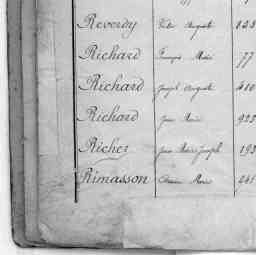 Reverdy Victor Auguste 823
Richard François Marie 77
Richard Joseph Auguste 410
Richard Jean Marie 925
Richer Jean Marie Joseph 193
Rimasson Marie 241